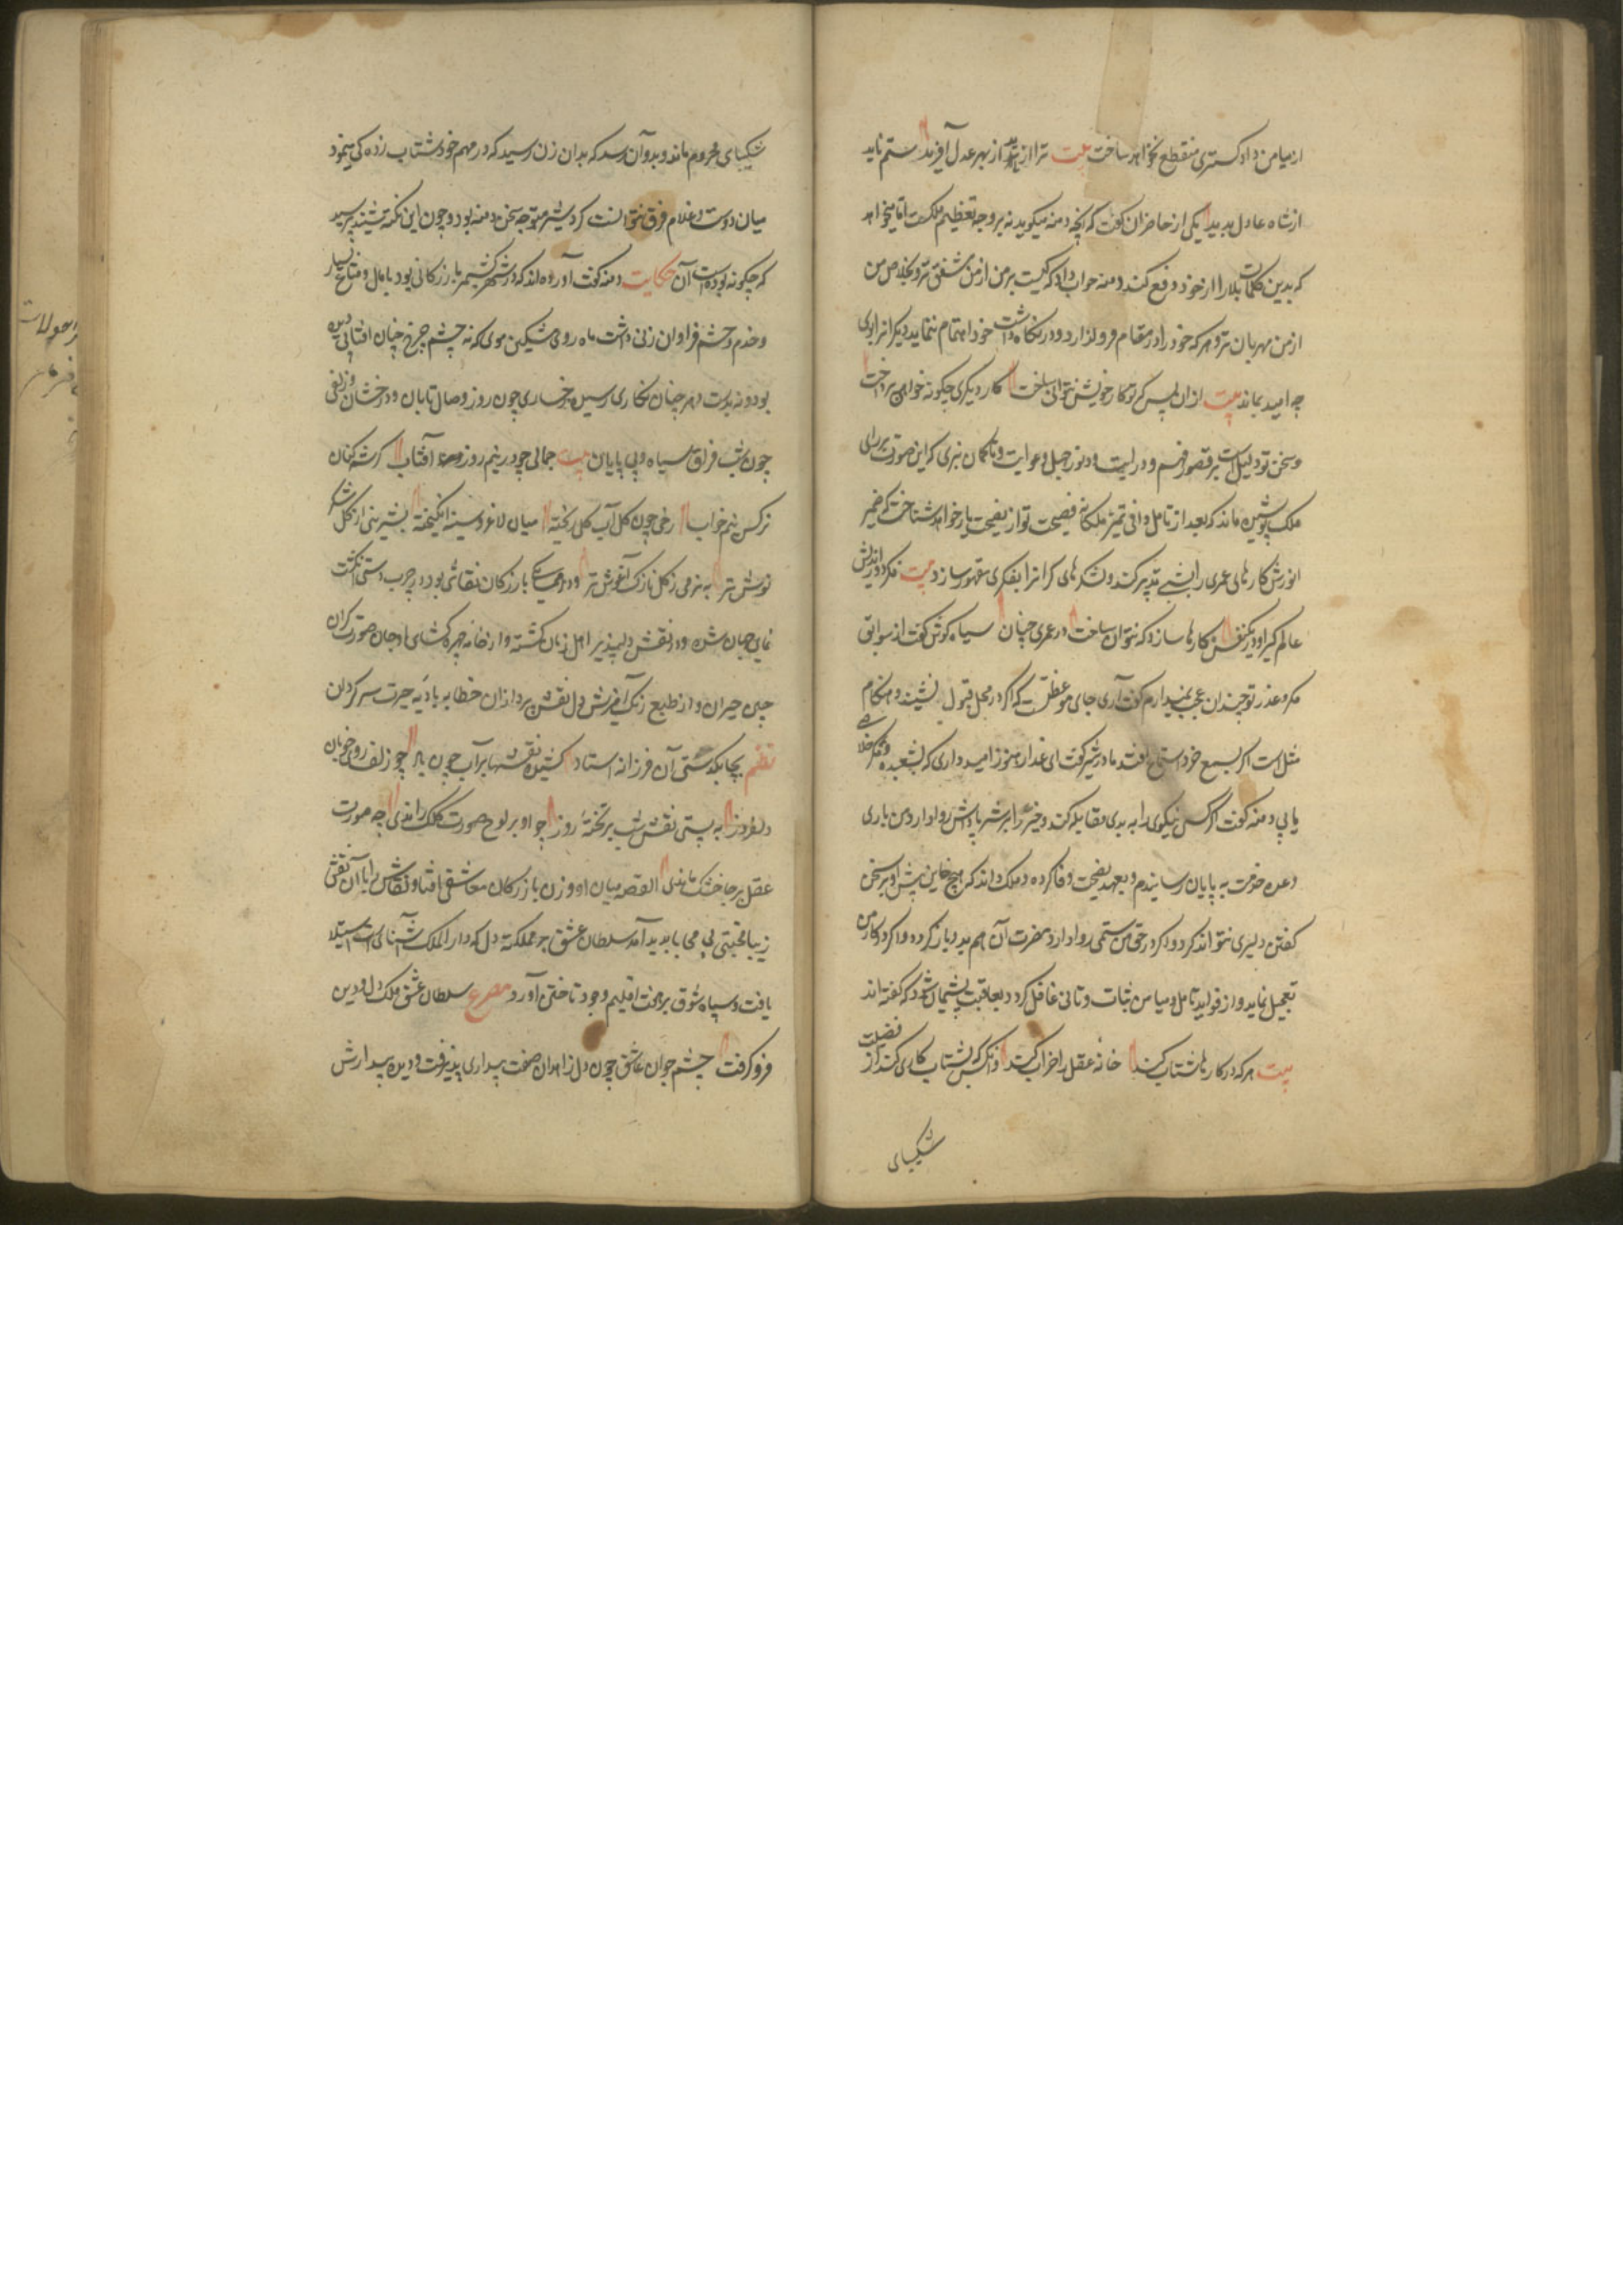 از میامن داد کستری منقطع نخواهد ساخت بیت ترا ایزد از بهر عدل آفرید ستم ناید
از شاه عادل پدید یکی از حاضران کفت که انچه دمنه میکوید نه بر وجه تعظیم ملکست اما میخواهد
که بدین کلمات بلا را از خود دفع کند دمنه جواب داد که کیست بر من از من مشفق تر و بخلاص من
از من مهربان تر و هر که خود را در مقام فرو کذارد و در نکاه داشت خود اهتمام ننماید دیکرانرا بوی
چه امید بماند بیت از ان پس کر تو کار خویش نتوانی ساخت کار دیکری چکونه خواهی پرداخت
و سخن تو دلیل است بر قصور فهم و درایت و وفور جهل و غوایت و تا کمان نبری که این صورت بر رای
ملک پوشیده ماند که بعد از تامل وافی تمیز ملکانه فضیحت تو از نصیحت باز خواهد شناخت که ضمیر
انورش کارهای عمری را بشبی تدبیر کند و لشکرهای کرانرا بفکری مقهور سازد بیت فکر دور اندیش
عالم کیر او در یکنفس کارها سازد که نتوان ساخت در عمری چنان سیاه کوش کفت از سوابق
مکر و غدر تو چندان عجب نمیدارم کفت آری جای موعظتست که اکر در محل قبول نشیند و هنکام
مثل است اکر بسمع خرد استماع افتد مادر شیر کفت ای غدار هنوز امید داری که بشعبده و مکر خلاصی
یابی دمنه کفت اکر کس نیکوی را به بدی مقابله کند و خیر را بشر پاداش روا دارد من باری
وعده خدمت به پایان رسانیدم و بعهد نصیحت وفا کرده و ملک داند که هیچ خاین پیش او بر سخن
کفتن دلیری نتواند کرد و اکر در حق من ستمی روا دارد مضرت آن هم بدو باز کردد و اکر در کار من
تعجیل نماید و از فواید تامل و میامن ثبات و تانی غافل کردد بعاقبت پشیمان شود که کفته اند
بیت هر که در کارها شتاب کند خانه عقل را خراب کند وانکس که شتاب کاری کند از فضیلت
شکیبای
شکیبای محروم ماند و بدو آن رسد که بدان زن رسید که در مهم خود شتاب زده کی نمود
میان دوست و غلام فرق نتوانست کرد شیر متوجه سخن دمنه بود و چون این نکته شنید پرسید
که چکونه بوده است آن حکایت دمنه کفت آورده اند که در شهر کشمیر بازرکانی بود با مال و متاع بسیار
و خدم و حشم فراوان زنی داشت ماه روی مشکین موی که نه چشم چرخ چنان افتابی دیده
بود و نه بدست دهر چنان نکاری رسیده رخساری چون روز وصال تابان و درخشان و زلفی
چون شب فراق سیاه و بی پایان بیت جمالی چو در نیم روز آفتاب کرشمه کنان
نرکس نیم خواب رخی چون کل آب کل ریخته میان لاغر و سینه انکیخته بشیرینی از کل شکر
نوش تر به نرمی ز کل نازک آغوش تر و در همسایه بازرکان نقاشی بود در چرب دستی انکشت
نمای جهان شده و در نقش دلپذیر اهل زمان کشته و از خامه چهره کشای او جان صورت کران
چین حیران و از طبع رنک آمیزش دل نقش پردازان خطا به بادیه حیرت سر کردان
نظم بچابکدستی آن فرزانه استاد کشیده نقشها بر آب چون باد چو زلف روی خوبان
دلفروز به بستی نقش شب بر تختهٔ روز چو او بر لوح صورت کلک راندی چه صورت
عقل بر جا خشک ماندی القصه میان او و زن بازرکان معاشقی افتاد و نقاش را با آن نقش
زیبا محبتی بی محابا پدید آمد سلطان عشق بر مملکت دل که دار الملک آشنای است استیلا
یافت و سپاه شوق بر هفت اقلیم وجود تاختن آورد مصرع سلطان عشق ملک دل و دین
فرو کرفت چشم جوان عاشق چون دل زاهدان صفت بیداری پذیرفت و دیده بیدارش